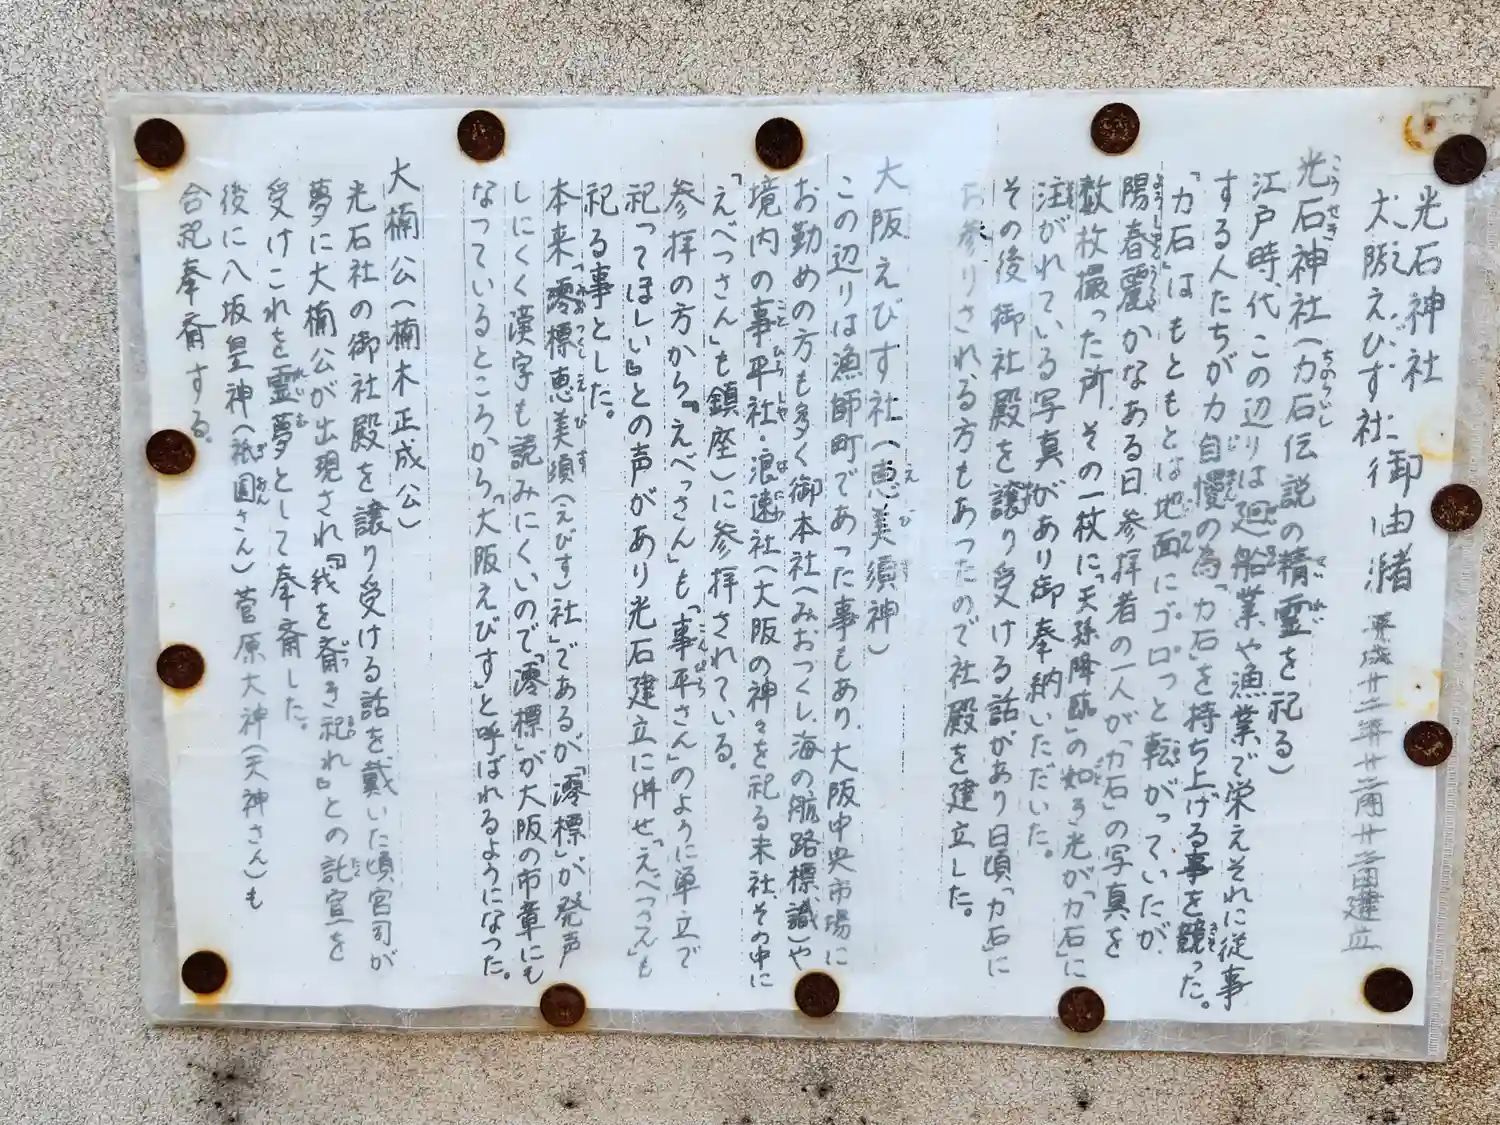 光石神社
大阪えびす社 御由緒
建立
光石神社(力石伝説の精霊を祀る)
江戸時代この辺りは廻船業や漁業で栄えそれに従事
する人たちが力自慢の為「力石」を持ち上げる事を競った。
「力石」はもともとは地面にゴロっと転がっていたが
陽春麗かなある日、参拝者の一人が「力石」の写真を
数枚撮った所、その一枚に「天孫降臨」の如き光が「力石」に
注がれている写真があり御奉納いただいた。
その後、御社殿を譲り受ける話があり日頃「力石」に
お参りされる方もあったので社殿を建立した。
大阪えびす社(恵美須神)
この辺りは漁師町であった事もあり、大阪中央市場に
お勤めの方も多く御本社へみおつくし、海の航路標識)や
境内の事平社・浪速社(大阪の神々を祀る末社、その中に
「えべっさん」も鎮座)に参拝されている。
参拝の方から『えべっさん」も「事平さん」のように単立で
祀ってほしい』との声があり光石建立に併せ「えべっさん」も
祀る事とした。
本来「澪標恵美須(えびす)社」であるが「澪標」が発声
しにくく漢字も読みにくいので「澪標」が大阪の市章にも
なっているところから「大阪えびす」と呼ばれるようになった。
大楠公(楠木正成公)
光石社の御社殿を譲り受ける話を戴いた頃、宮司が
夢に大楠公が出現され『我を斎き祀れ』との託宣を
受けこれを霊夢として奉斎した。
後に八坂皇神(祇園さん)菅原大神(天神さん)も
合祀奉斎する。